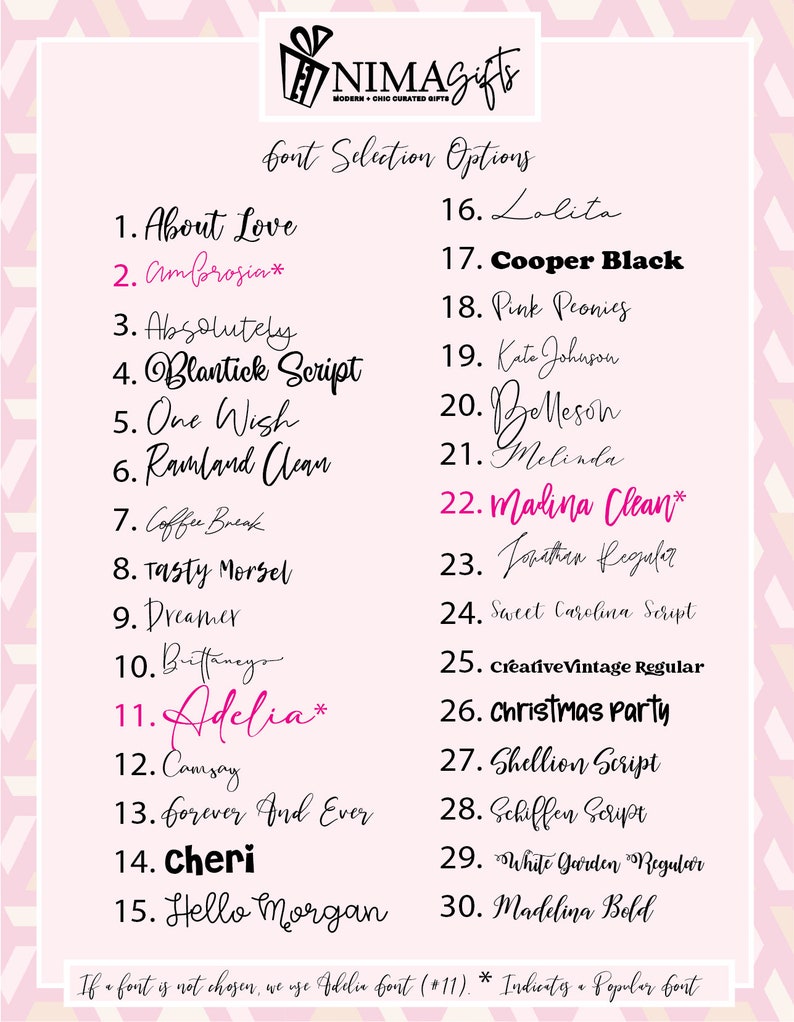 NIMA Gifts
MODERN + CHIC CURATED GIFTS
Font Selection Options
1. About Love
2. Ambrosia*
3. Absolutely
4. Blantick Script
5. One Wish
6. Ramland Clean
7. Coffee Break
8. Tasty Morsel
9. Dreamer
10. Brittaneys
11. Adelia*
12. Camsay
13. Forever And Ever
14. Cheri
15. Hello Morgan
16. Lolita
17. Cooper Black
18. Pink Peonies
19. Kate Johnson
20. Belleson
21. Melinda
22. Madina Clean*
23. Jonathan Regular
24. Sweet Carolina Script
25. CreativeVintage Regular
26. Christmas Party
27. Shellion Script
28. Schiffen Script
29. White Garden Regular
30. Madelina Bold
If a font is not chosen, we use Adelia Font (#11). * Indicates a Popular Font